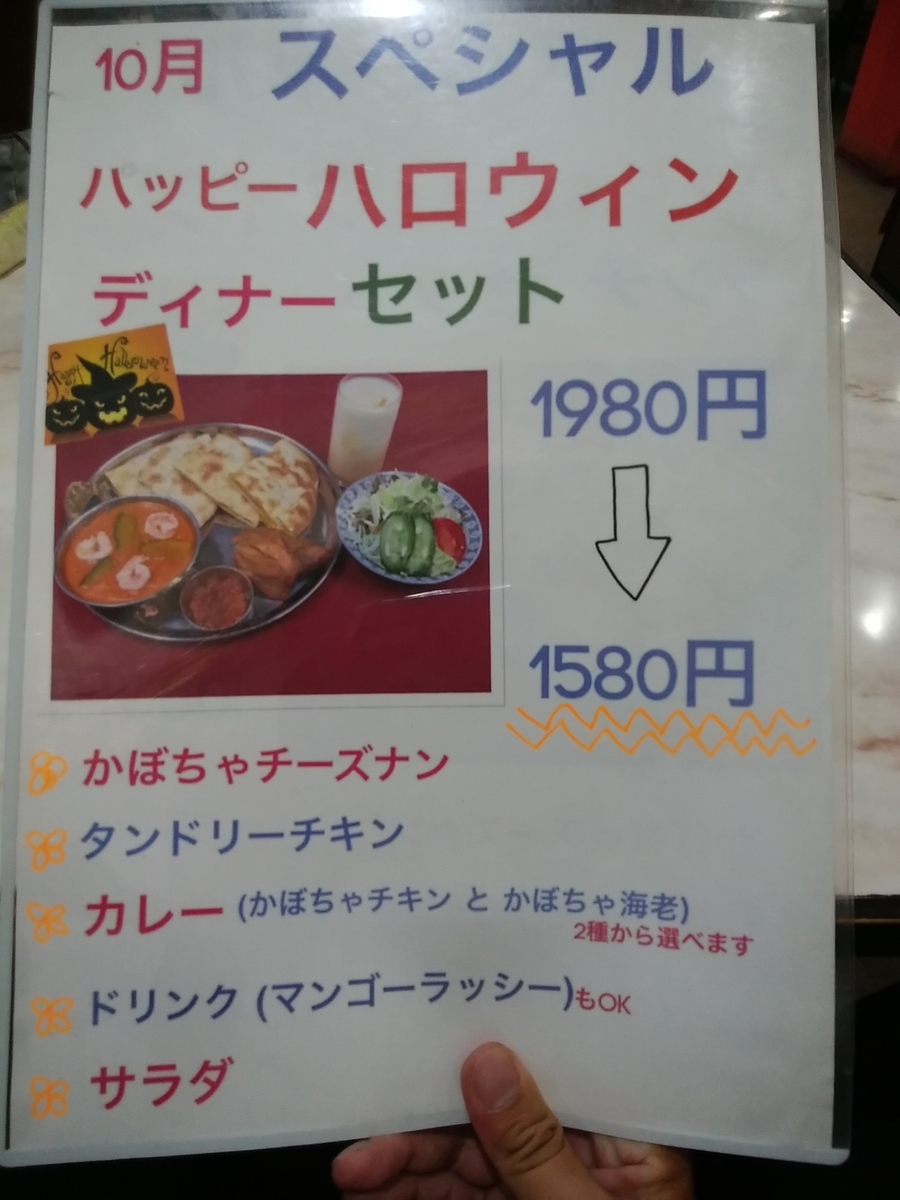 10月 スペシャル
ハッピーハロウィン
ディナーセット
Happy Halloween
1980円
1580円
かぼちゃチーズナン
タンドリーチキン
カレー (かぼちゃチキン と かぼちゃ海老)
2種から選べます
ドリンク (マンゴーラッシー)もOK
サラダ